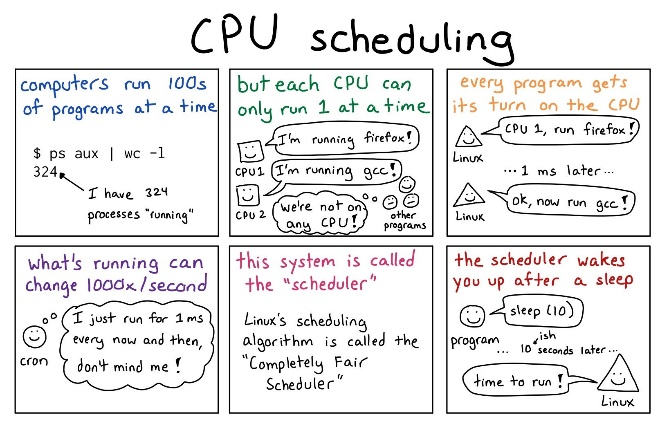 CPU scheduling
computers run 100s
of programs at a time
$ ps aux | wc -l
324
I have 324
processes "running"
but each CPU can
only run 1 at a time
I'm running firefox!
CPU 1
I'm running gcc!
CPU 2
we're not on
any CPU!
other
programs
every program gets
its turn on the CPU
CPU 1, run firefox!
Linux
... 1 ms later ...
ok, now run gcc!
Linux
what's running can
change 1000x/second
I just run for 1 ms
every now and then,
don't mind me!
cron
this system is called
the "scheduler"
Linux's scheduling
algorithm is called the
"Completely Fair
Scheduler"
the scheduler wakes
you up after a sleep
sleep (10)
program
ish
... 10 seconds later ...
time to run!
Linux